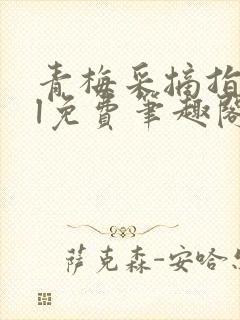 青梅采摘指
l免费笔趣阁
萨克森-安哈